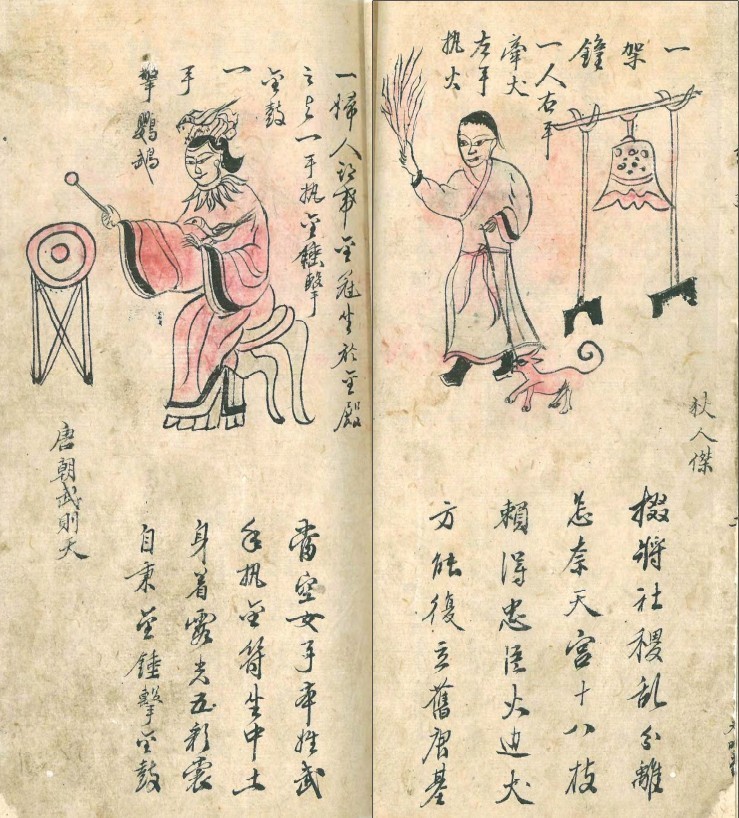 一
架
鐘
一人右手
牽犬
左手
执火
狄人傑
掇將社稷乱分離
怎奈天宫十八枝
賴得忠臣火边犬
方能復立舊唐基
一婦人头帶金冠坐於金殿
之上一手执金錘擊
金鼓
一
手
擎鸚鵡
唐朝武則天
當空女子本姓武
手执金符生中土
身着霞光五彩裳
自秉金錘擊金鼓